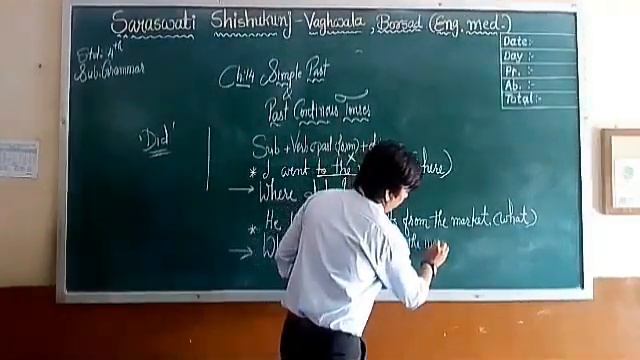 Saraswati Shishukunj - Vaghwala, Borsad (Eng. med.)
Std: 4th
Sub: Grammar
Date:-
Day:-
Pr.:-
Ab.:-
Total:-
Ch:14 Simple Past
&
Past Continous Tenses
'Did'
Sub + Verb (past form) +
* I went to the here)
→ Where did
* He from the market. (what)
→ the